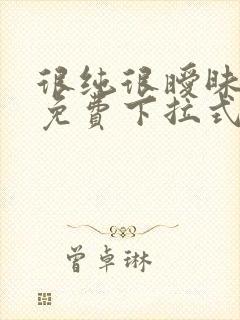 很纯很暧昧
免费下拉式
曾卓琳